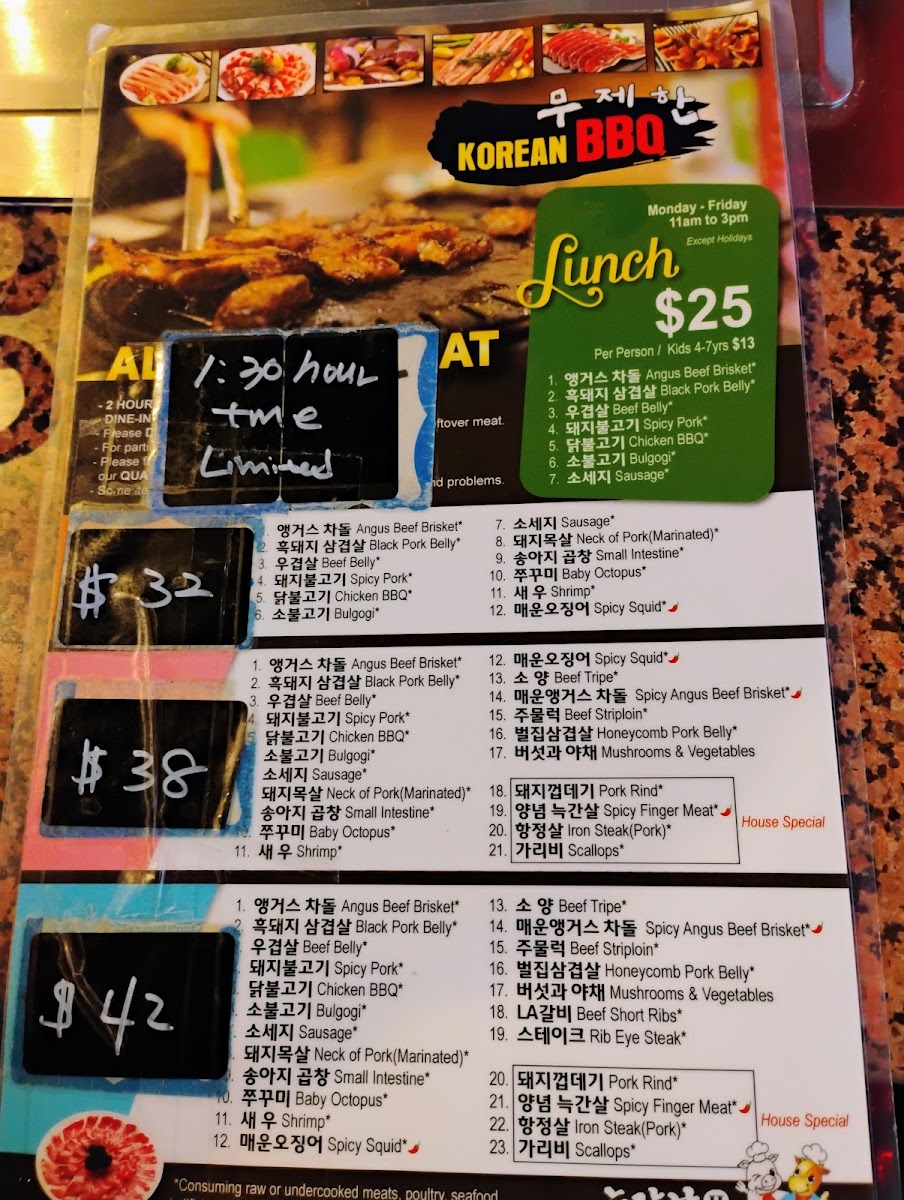 무제한
KOREAN BBQ
Monday - Friday
11am to 3pm
Except Holidays
Lunch
$25
Per Person / Kids 4-7yrs $13
1. 앵거스 차돌 Angus Beef Brisket*
2. 흑돼지 삼겹살 Black Pork Belly*
3. 우겹살 Beef Belly*
4. 돼지불고기 Spicy Pork*
5. 닭불고기 Chicken BBQ*
6. 소불고기 Bulgogi*
7. 소세지 Sausage*
AL
AT
1:30 hour
tme
Limited
- 2 HOUR
- DINE-IN
ftover meat.
- Please
- For parti
- Please f
our QUA
nd problems.
- Some ite
$ 32
앵거스 차돌 Angus Beef Brisket*
2. 흑돼지 삼겹살 Black Pork Belly*
3. 우겹살 Beef Belly*
4. 돼지불고기 Spicy Pork*
5. 닭불고기 Chicken BBQ*
6. 소불고기 Bulgogi*
7. 소세지 Sausage*
8. 돼지목살 Neck of Pork(Marinated)*
9. 송아지 곱창 Small Intestine*
10. 쭈꾸미 Baby Octopus*
11. 새 우 Shrimp*
12. 매운오징어 Spicy Squid*
$ 38
1. 앵거스 차돌 Angus Beef Brisket*
2. 흑돼지 삼겹살 Black Pork Belly*
3. 우겹살 Beef Belly*
4. 돼지불고기 Spicy Pork*
닭불고기 Chicken BBQ*
소불고기 Bulgogi*
소세지 Sausage*
돼지목살 Neck of Pork(Marinated)*
송아지 곱창 Small Intestine*
쭈꾸미 Baby Octopus*
11. 새 우 Shrimp*
12. 매운오징어 Spicy Squid*
13. 소 양 Beef Tripe*
14. 매운앵거스 차돌 Spicy Angus Beef Brisket*
15. 주물럭 Beef Striploin*
16. 벌집삼겹살 Honeycomb Pork Belly*
17. 버섯과 야채 Mushrooms & Vegetables
18. 돼지껍데기 Pork Rind*
19. 양념 늑간살 Spicy Finger Meat*
20. 항정살 Iron Steak(Pork)*
21. 가리비 Scallops*
House Special
$ 42
1. 앵거스 차돌 Angus Beef Brisket*
2. 흑돼지 삼겹살 Black Pork Belly*
우겹살 Beef Belly*
돼지불고기 Spicy Pork*
닭불고기 Chicken BBQ*
소불고기 Bulgogi*
소세지 Sausage*
돼지목살 Neck of Pork(Marinated)*
송아지 곱창 Small Intestine*
10. 쭈꾸미 Baby Octopus*
11. 새 우 Shrimp*
12. 매운오징어 Spicy Squid*
13. 소 양 Beef Tripe*
14. 매운앵거스 차돌 Spicy Angus Beef Brisket*
15. 주물럭 Beef Striploin*
16. 벌집삼겹살 Honeycomb Pork Belly*
17. 버섯과 야채 Mushrooms & Vegetables
18. LA갈비 Beef Short Ribs*
19. 스테이크 Rib Eye Steak*
20. 돼지껍데기 Pork Rind*
21. 양념 늑간살 Spicy Finger Meat*
22. 항정살 Iron Steak(Pork)*
23. 가리비 Scallops*
House Special
*Consuming raw or undercooked meats, poultry, seafood